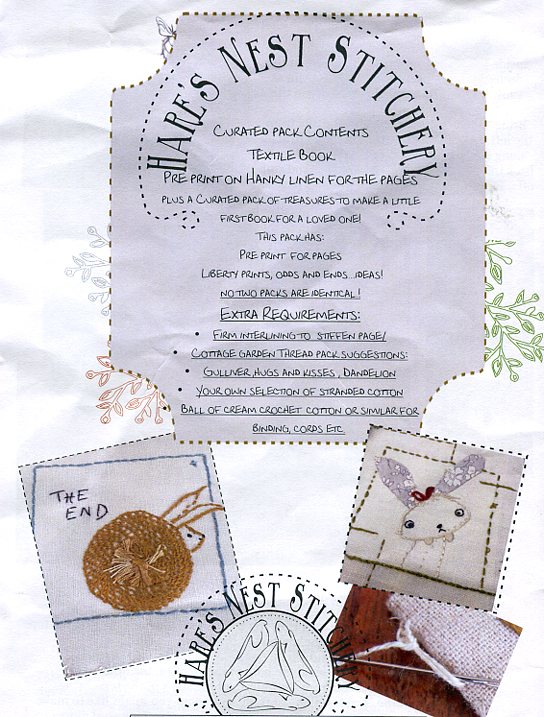 HARE'S NEST STITCHERY
CURATED PACK CONTENTS
TEXTILE BOOK
PRE PRINT ON HANKY LINEN FOR THE PAGES
PLUS A CURATED PACK OF TREASURES TO MAKE A LITTLE
FIRST BOOK FOR A LOVED ONE!
THIS PACK HAS:
PRE PRINT FOR PAGES
LIBERTY PRINTS, ODDS AND ENDS..IDEAS!
NO TWO PACKS ARE IDENTICAL!
EXTRA REQUIREMENTS:
• FIRM INTERLINING TO STIFFEN PAGE/
• COTTAGE GARDEN THREAD PACK SUGGESTIONS:
• GULLIVER, HUGS AND KISSES, DANDELION
• YOUR OWN SELECTION OF STRANDED COTTON
• BALL OF CREAM CROCHET COTTON OR SIMILAR FOR
BINDING, CORDS ETC
THE
END
HARE'S NEST STITCHERY